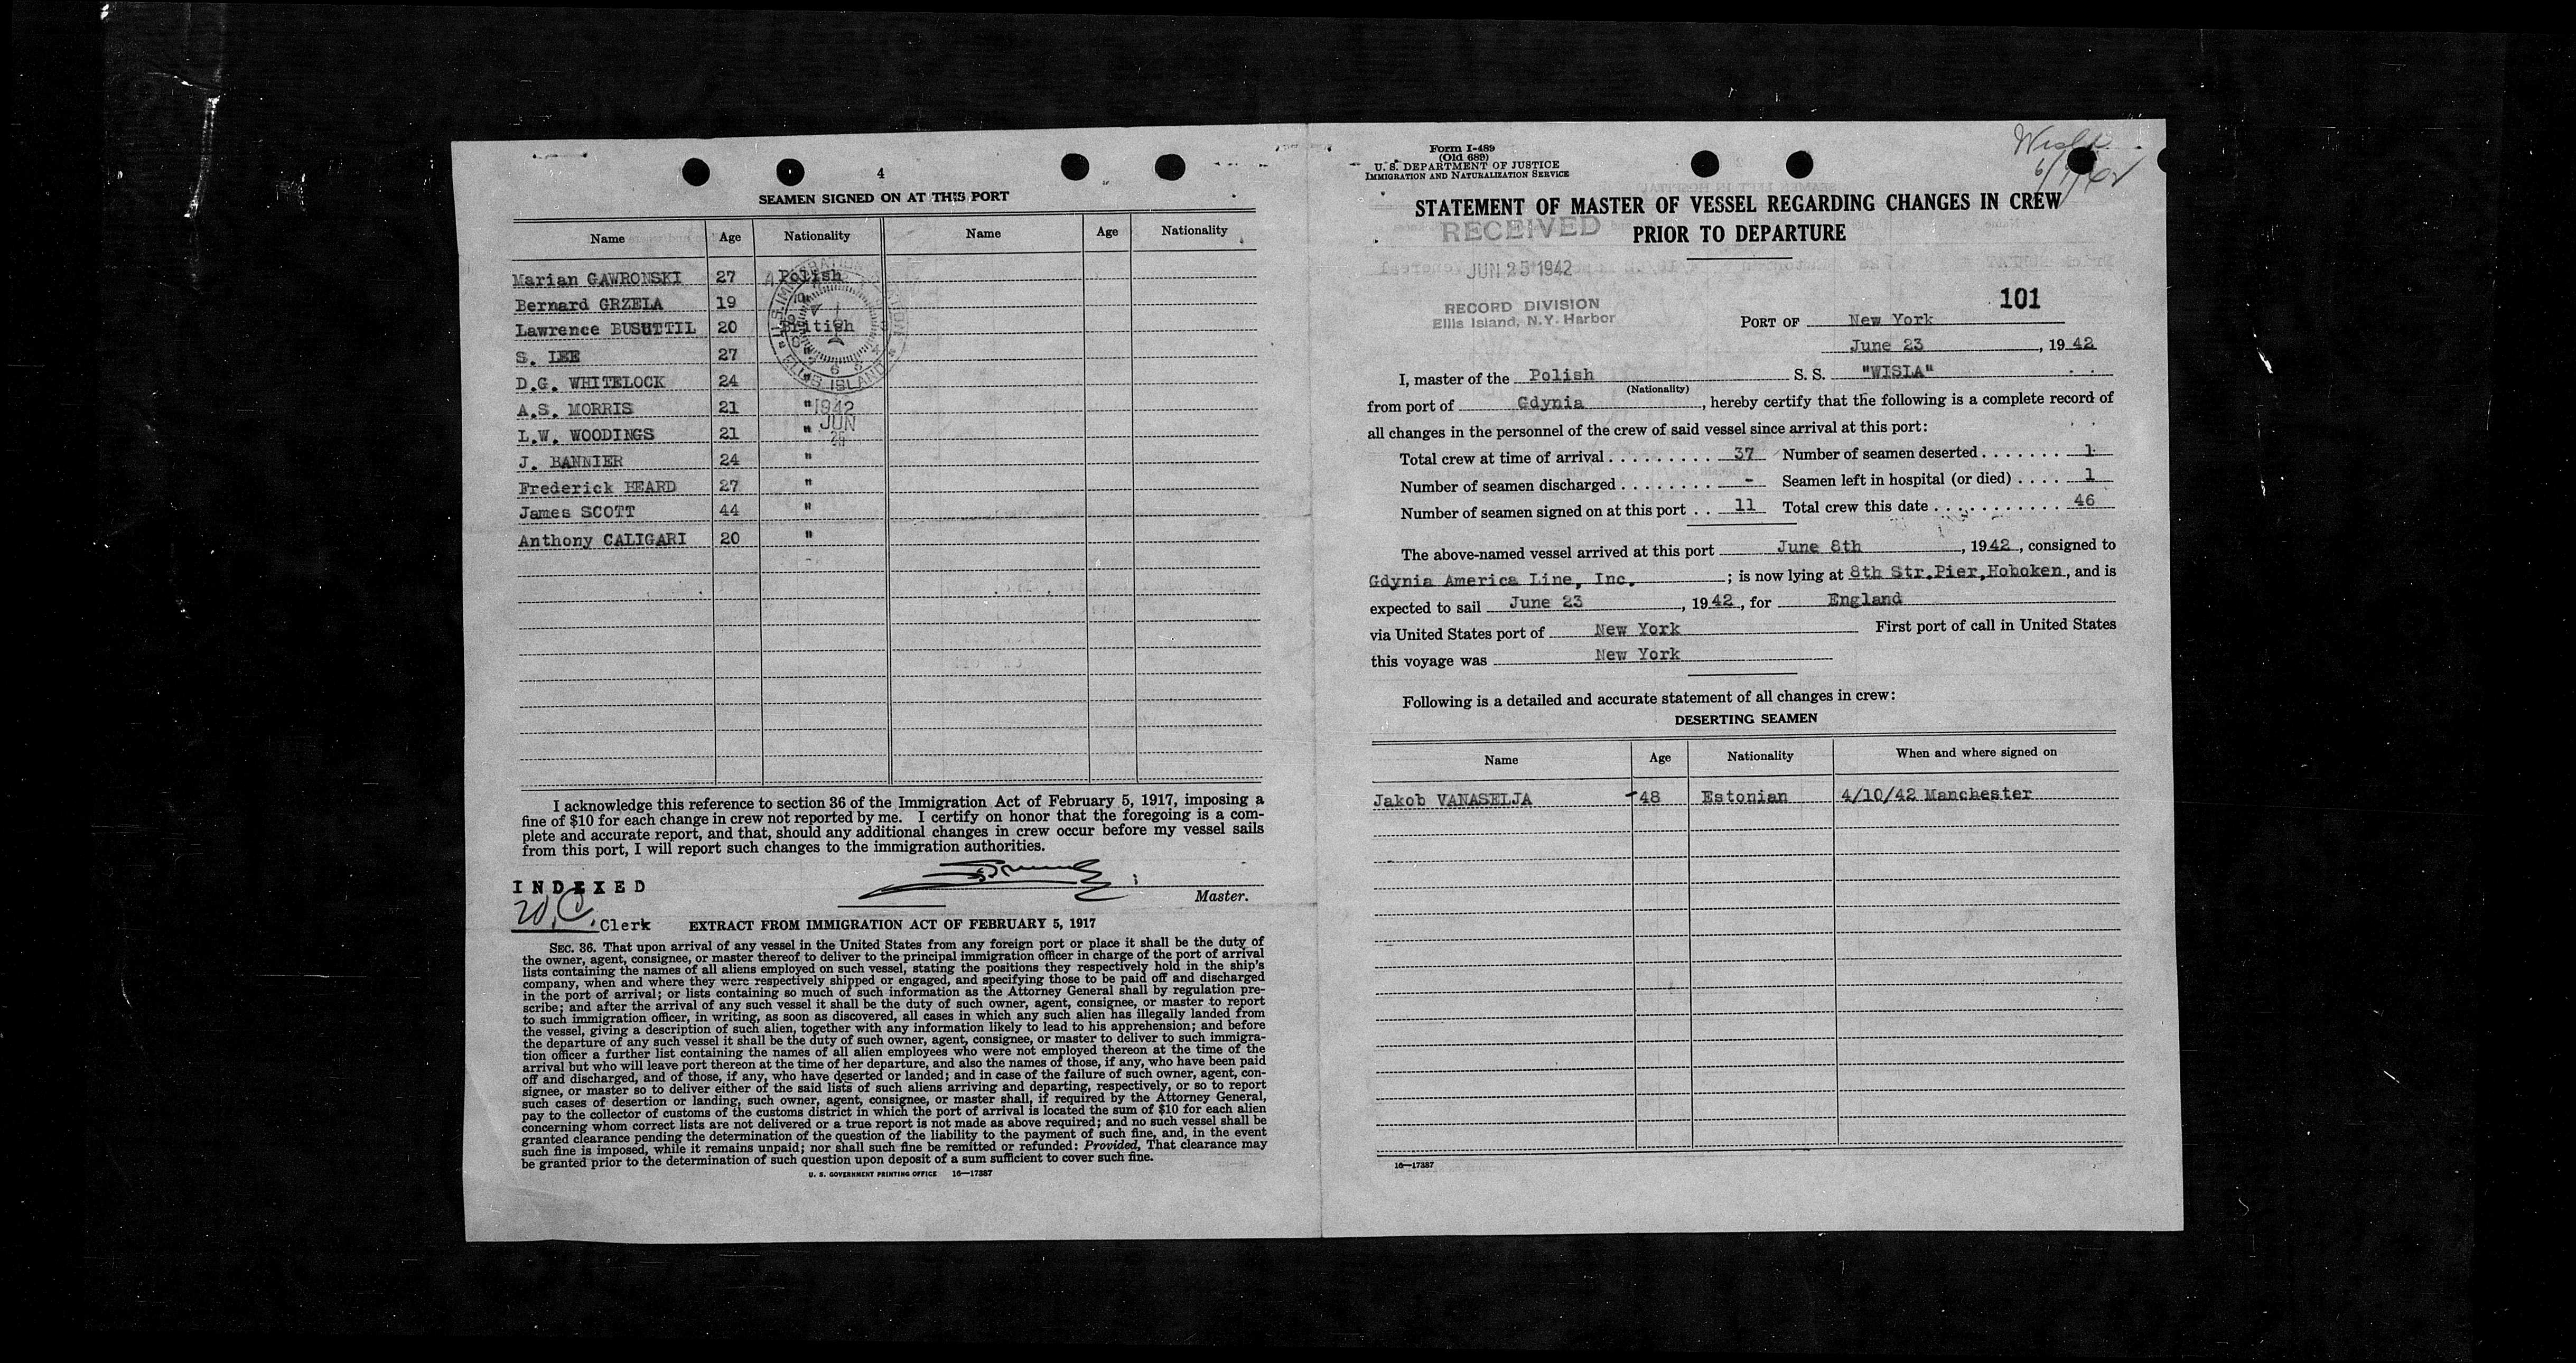 4
SEAMEN SIGNED ON AT THIS PORT
Name Age Nationality Name Age Nationality
Marian GAWRONSKI 27 Polish
Bernard GRZELA 19
Lawrence BUSUTTIL 20 British
S. LEE 27
D.G. WHITELOCK 24
A.S. MORRIS 21 "
L.W. WOODINGS 21 "
J. BANNIER 24 "
Frederick HEARD 27 "
James SCOTT 44 "
Anthony CALIGARI 20 "
ELLIS ISLAND
1942
JUN
I acknowledge this reference to section 36 of the Immigration Act of February 5, 1917, imposing a
fine of $10 for each change in crew not reported by me. I certify on honor that the foregoing is a com-
plete and accurate report, and that, should any additional changes in crew occur before my vessel sails
from this port, I will report such changes to the immigration authorities.
Master.
INDEXED
Clerk
EXTRACT FROM IMMIGRATION ACT OF FEBRUARY 5, 1917
SEC. 36. That upon arrival of any vessel in the United States from any foreign port or place it shall be the duty of
the owner, agent, consignee, or master thereof to deliver to the principal immigration officer in charge of the port of arrival
lists containing the names of all aliens employed on such vessel, stating the positions they respectively hold in the ship's
company, when and where they were respectively shipped or engaged, and specifying those to be paid off and discharged
in the port of arrival; or lists containing so much of such information as the Attorney General shall by regulation pre-
scribe; and after the arrival of any such vessel it shall be the duty of such owner, agent, consignee, or master to report
to such immigration officer, in writing, as soon as discovered, all cases in which any such alien has illegally landed from
the vessel, giving a description of such alien, together with any information likely to lead to his apprehension; and before
the departure of any such vessel it shall be the duty of such owner, agent, consignee, or master to deliver to such immigra-
tion officer a further list containing the names of all alien employees who were not employed thereon at the time of the
arrival but who will leave port thereon at the time of her departure, and also the names of those, if any, who have been paid
off and discharged, and of those, if any, who have deserted or landed; and in case of the failure of such owner, agent, con-
signee, or master so to deliver either of the said lists of such aliens arriving and departing, respectively, or so to report
such cases of desertion or landing, such owner, agent, consignee, or master shall, if required by the Attorney General,
pay to the collector of customs of the customs district in which the port of arrival is located the sum of $10 for each alien
concerning whom correct lists are not delivered or a true report is not made as above required; and no such vessel shall be
granted clearance pending the determination of the question of the liability to the payment of such fine, and, in the event
such fine is imposed, while it remains unpaid; nor shall such fine be remitted or refunded: Provided, That clearance may
be granted prior to the determination of such question upon deposit of a sum sufficient to cover such fine.
U. S. GOVERNMENT PRINTING OFFICE 16—17387
Form I-489
(Old 689)
U. S. DEPARTMENT OF JUSTICE
IMMIGRATION AND NATURALIZATION SERVICE
STATEMENT OF MASTER OF VESSEL REGARDING CHANGES IN CREW
PRIOR TO DEPARTURE
RECEIVED
JUN 25 1942
RECORD DIVISION
Ellis Island, N.Y. Harbor
101
PORT OF New York
June 23, 1942
I, master of the Polish S. S. "WISLA"
(Nationality)
from port of Gdynia, hereby certify that the following is a complete record of
all changes in the personnel of the crew of said vessel since arrival at this port:
Total crew at time of arrival . . . . . . . . . 37 Number of seamen deserted . . . . . . . 1
Number of seamen discharged . . . . . . . . - Seamen left in hospital (or died) . . . . 1
Number of seamen signed on at this port . . 11 Total crew this date . . . . . . . . . . . 46
The above-named vessel arrived at this port June 8th, 1942, consigned to
Gdynia America Line, Inc. ; is now lying at 8th Str.Pier,Hoboken, and is
expected to sail June 23, 1942, for England
via United States port of New York First port of call in United States
this voyage was New York
Following is a detailed and accurate statement of all changes in crew:
DESERTING SEAMEN
Name Age Nationality When and where signed on
Jakob VANASELJA -48 Estonian 4/10/42 Manchester
16—17387